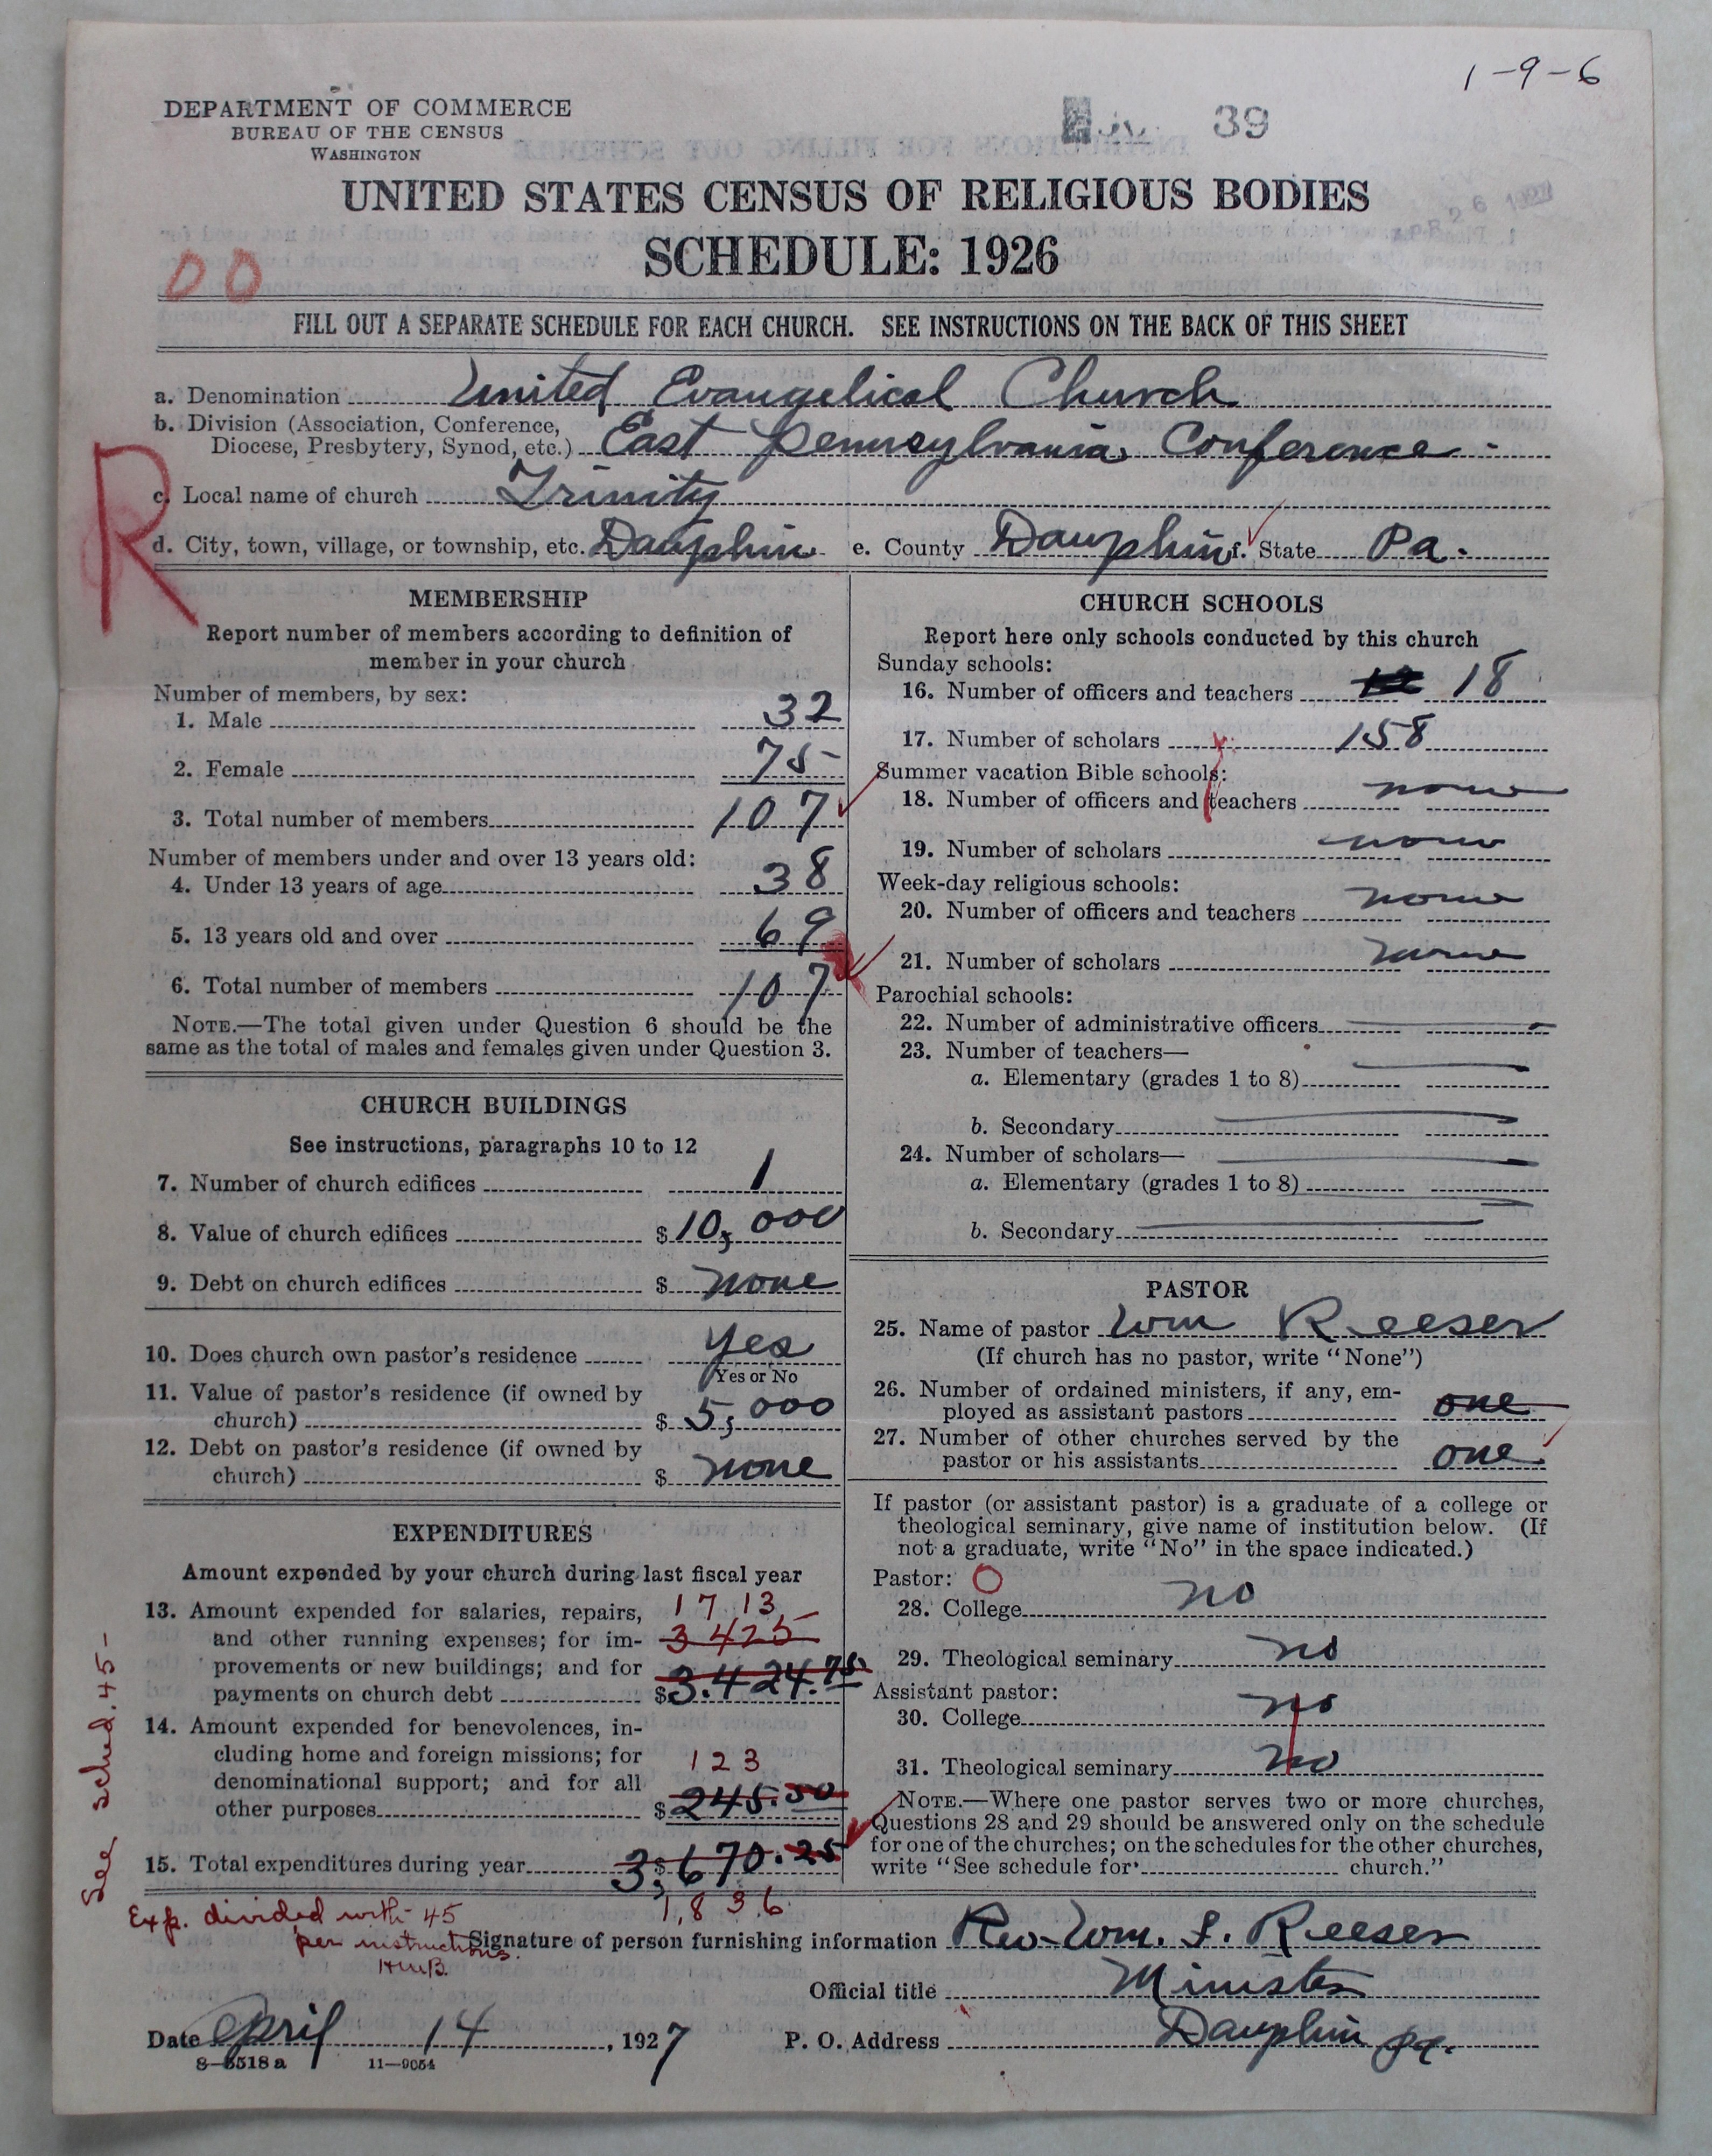 1-9-6
DEPARTMENT OF COMMERCE
BUREAU OF THE CENSUS
WASHINGTON
39
UNITED STATES CENSUS OF RELIGIOUS BODIES
APR 26 1927
SCHEDULE: 1926
00
FILL OUT A SEPARATE SCHEDULE FOR EACH CHURCH. SEE INSTRUCTIONS ON THE BACK OF THIS SHEET
a. Denomination United Evangelical Church
b. Division (Association, Conference,
Diocese, Presbytery, Synod, etc.) East Pennsylvania Conference
R
c. Local name of church Trinity
d. City, town, village, or township, etc. Dauphin e. County Dauphin f. State Pa.
MEMBERSHIP
Report number of members according to definition of
member in your church
Number of members, by sex:
1. Male 32
2. Female 75
3. Total number of members 107
Number of members under and over 13 years old:
4. Under 13 years of age 38
5. 13 years old and over 69
6. Total number of members 107
NOTE.—The total given under Question 6 should be the
same as the total of males and females given under Question 3.
CHURCH BUILDINGS
See instructions, paragraphs 10 to 12
7. Number of church edifices 1
8. Value of church edifices $10,000
9. Debt on church edifices $ none
10. Does church own pastor's residence yes
Yes or No
11. Value of pastor's residence (if owned by
church) $ 5,000
12. Debt on pastor's residence (if owned by
church) $ none
EXPENDITURES
Amount expended by your church during last fiscal year
13. Amount expended for salaries, repairs, 1713
and other running expenses; for im- 3425
provements or new buildings; and for
payments on church debt $3.424.75
14. Amount expended for benevolences, in-
cluding home and foreign missions; for 123
denominational support; and for all
other purposes $245.50
15. Total expenditures during year $3,670.25
1,836
See sched. 45-
Exp. divided with 45
per instructions.
HWB.
CHURCH SCHOOLS
Report here only schools conducted by this church
Sunday schools:
16. Number of officers and teachers 18
17. Number of scholars 158
Summer vacation Bible schools:
18. Number of officers and teachers none
19. Number of scholars none
Week-day religious schools:
20. Number of officers and teachers none
21. Number of scholars none
Parochial schools:
22. Number of administrative officers
23. Number of teachers—
a. Elementary (grades 1 to 8)
b. Secondary
24. Number of scholars—
a. Elementary (grades 1 to 8)
b. Secondary
PASTOR
25. Name of pastor Wm Reeser
(If church has no pastor, write "None")
26. Number of ordained ministers, if any, em-
ployed as assistant pastors one
27. Number of other churches served by the
pastor or his assistants one
If pastor (or assistant pastor) is a graduate of a college or
theological seminary, give name of institution below. (If
not a graduate, write "No" in the space indicated.)
Pastor:
28. College no
29. Theological seminary no
Assistant pastor:
30. College no
31. Theological seminary no
NOTE.—Where one pastor serves two or more churches,
Questions 28 and 29 should be answered only on the schedule
for one of the churches; on the schedules for the other churches,
write "See schedule for church."
Signature of person furnishing information Rev. Wm. F. Reeser
Official title Minister
Date April 14, 1927 P. O. Address Dauphin Pa.
8-5518a 11-9054